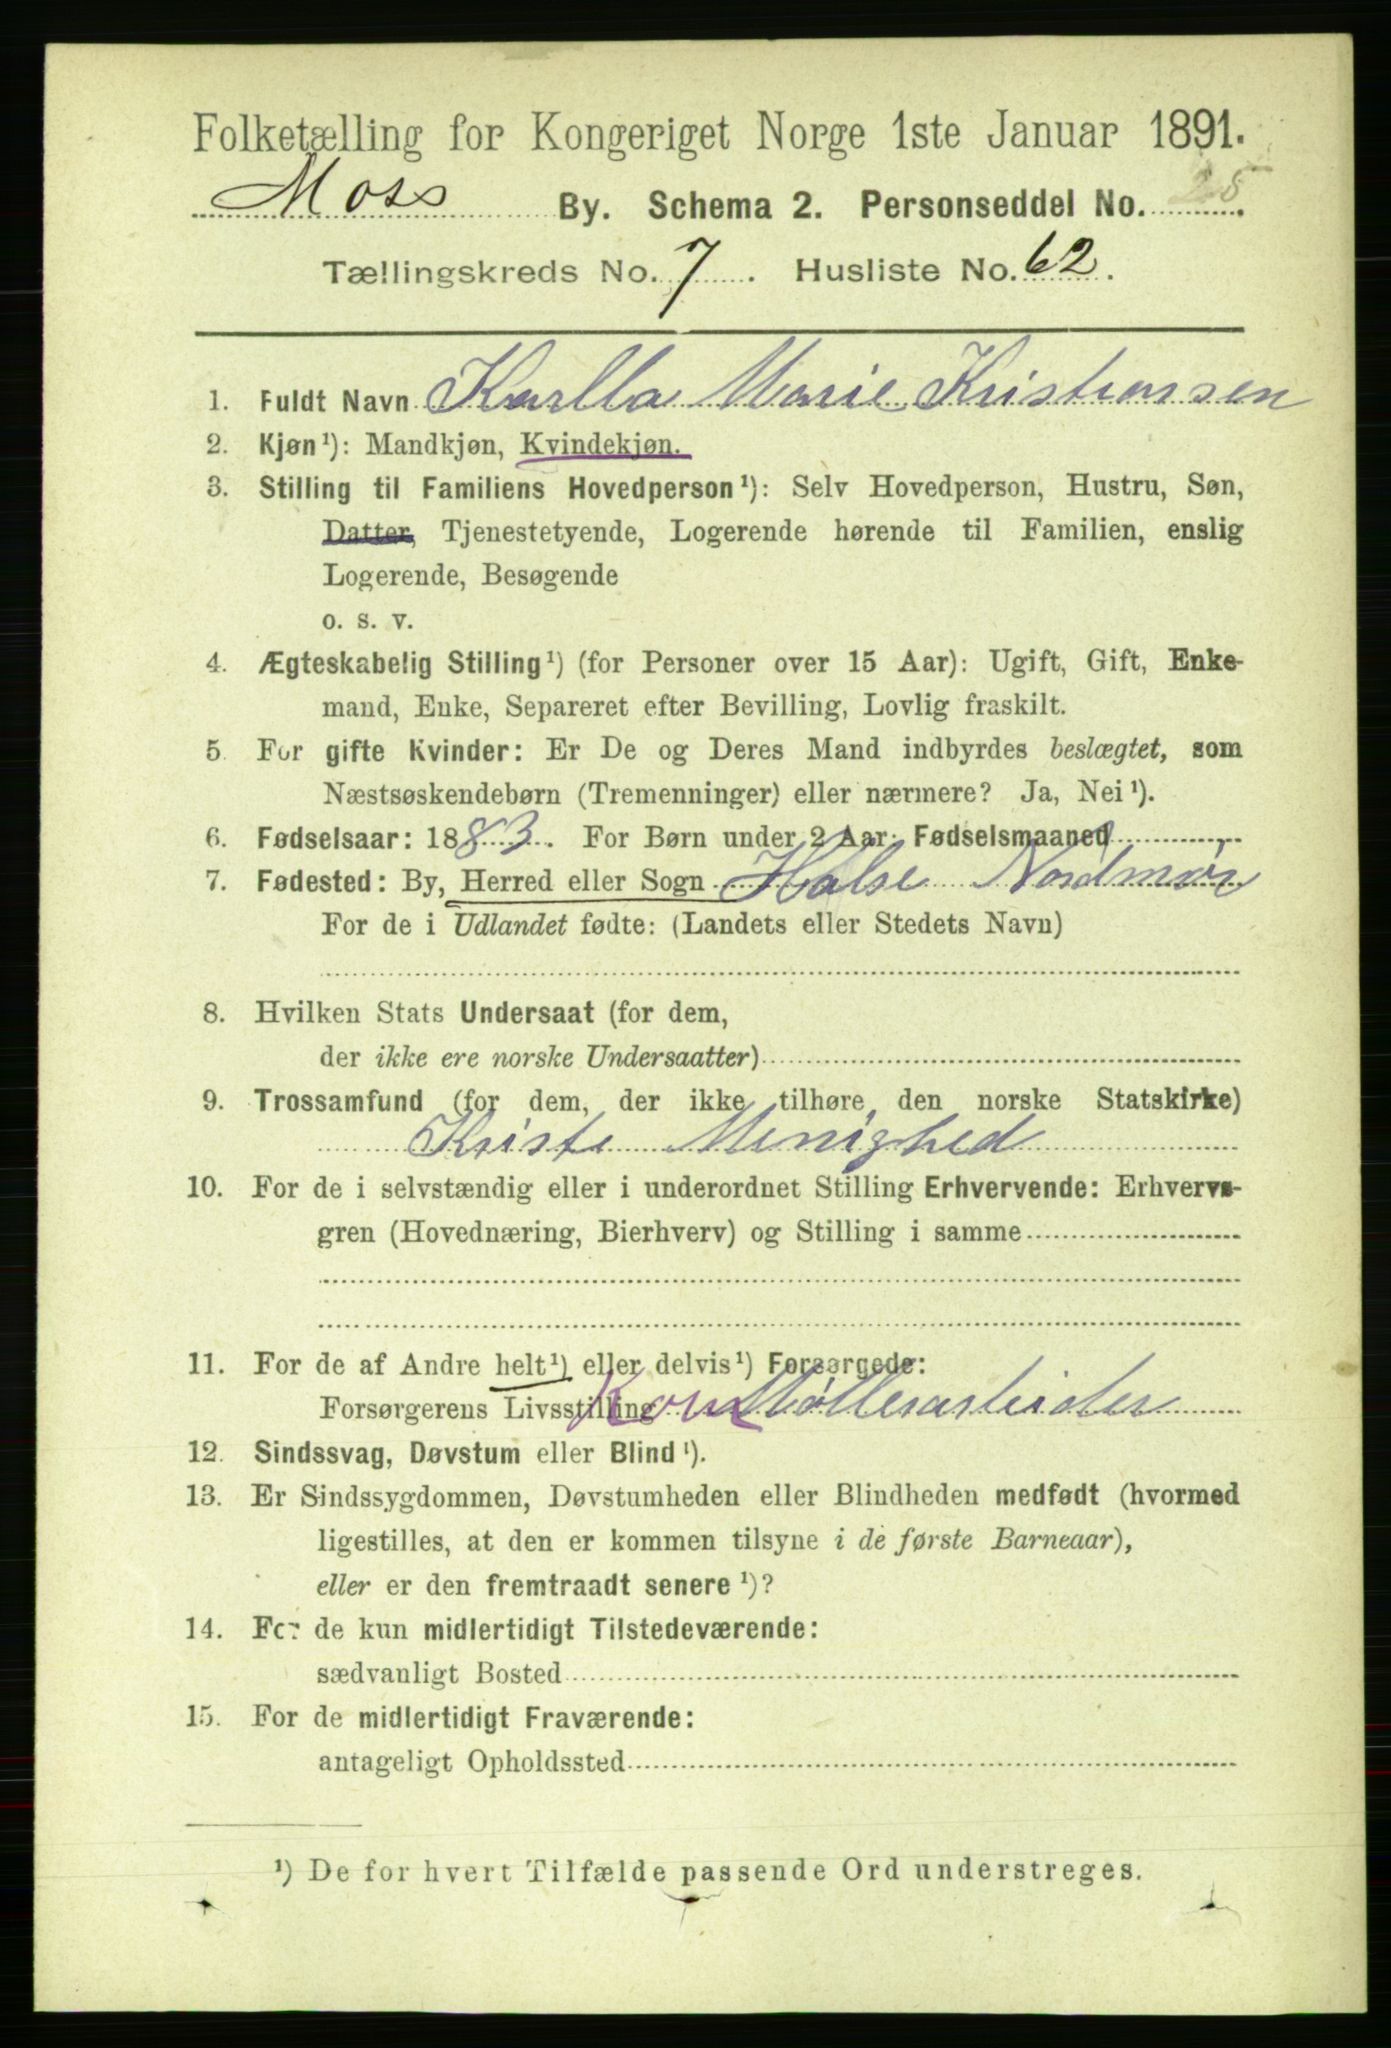 Folketælling for Kongeriget Norge 1ste Januar 1891.
Moss By. Schema 2. Personseddel No. 25.
Tællingskreds No. 7. Husliste No. 62.
1. Fuldt Navn Karlla Marie Kristiansen
2. Kjøn¹): Mandkjøn, Kvindekjøn.
3. Stilling til Familiens Hovedperson¹): Selv Hovedperson, Hustru, Søn,
Datter, Tjenestetyende, Logerende hørende til Familien, enslig
Logerende, Besøgende
o. s. v.
4. Ægteskabelig Stilling¹) (for Personer over 15 Aar): Ugift, Gift, Enke-
mand, Enke, Separeret efter Bevilling, Lovlig fraskilt.
5. For gifte Kvinder: Er De og Deres Mand indbyrdes beslægtet, som
Næstsøskendebørn (Tremenninger) eller nærmere? Ja, Nei¹).
6. Fødselsaar: 1883. For Børn under 2 Aar: Fødselsmaaned
7. Fødested: By, Herred eller Sogn Halse Nordmør
For de i Udlandet fødte: (Landets eller Stedets Navn)
8. Hvilken Stats Undersaat (for dem,
der ikke ere norske Undersaatter)
9. Trossamfund (for dem, der ikke tilhøre den norske Statskirke)
Kriste Menighed
10. For de i selvstændig eller i underordnet Stilling Erhvervende: Erhvervs-
gren (Hovednæring, Bierhverv) og Stilling i samme
11. For de af Andre helt¹) eller delvis¹) Forsørgede:
Forsørgerens Livsstilling Korn Møllerarbeider
12. Sindssvag, Døvstum eller Blind¹).
13. Er Sindssygdommen, Døvstumheden eller Blindheden medfødt (hvormed
ligestilles, at den er kommen tilsyne i de første Barneaar),
eller er den fremtraadt senere¹)?
14. For de kun midlertidigt Tilstedeværende:
sædvanligt Bosted
15. For de midlertidigt Fraværende:
antageligt Opholdssted
¹) De for hvert Tilfælde passende Ord understreges.